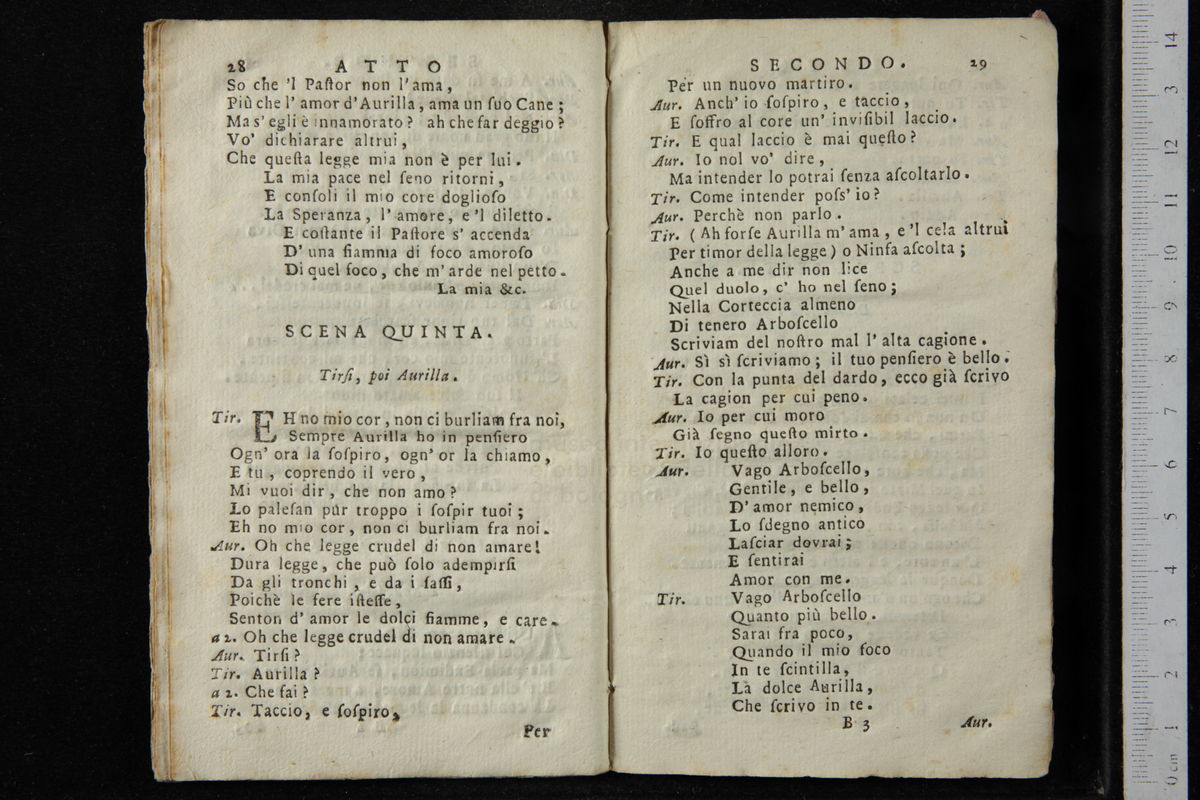 28 ATTO
So che 'l Paſtor non l'ama,
Più che l' amor d'Aurilla, ama un ſuo Cane;
Ma s' egli è innamorato? ah che far deggio?
Vo' dichiarare altrui,
Che queſta legge mia non è per lui.
La mia pace nel ſeno ritorni,
E conſoli il mio core doglioſo
La Speranza, l' amore, e 'l diletto.
E coſtante il Paſtore s' accenda
D' una fiamma di foco amoroſo
Di quel foco, che m' arde nel petto.
La mia &c.
SCENA QUINTA.
Tirſi, poi Aurilla.
Tir. EH no mio cor, non ci burliam fra noi,
Sempre Aurilla ho in penſiero
Ogn' ora la ſoſpiro, ogn' or la chiamo,
E tu, coprendo il vero,
Mi vuoi dir, che non amo?
Lo paleſan pur troppo i ſoſpir tuoi;
Eh no mio cor, non ci burliam fra noi.
Aur. Oh che legge crudel di non amare!
Dura legge, che può ſolo adempirſi
Da gli tronchi, e da i ſaſſi,
Poichè le fere iſteſſe,
Senton d' amor le dolci fiamme, e care.
a 2. Oh che legge crudel di non amare.
Aur. Tirſi?
Tir. Aurilla?
a 2. Che fai?
Tir. Taccio, e ſoſpiro,
Per
SECONDO. 29
Per un nuovo martiro.
Aur. Anch' io ſoſpiro, e taccio,
E ſoffro al core un' inviſibil laccio.
Tir. E qual laccio è mai queſto?
Aur. Io nol vo' dire,
Ma intender lo potrai ſenza aſcoltarlo.
Tir. Come intender poſs' io?
Aur. Perchè non parlo.
Tir. (Ah forſe Aurilla m' ama, e 'l cela altrui
Per timor della legge) o Ninfa aſcolta;
Anche a me dir non lice
Quel duolo, c' ho nel ſeno;
Nella Corteccia almeno
Di tenero Arboſcello
Scriviam del noſtro mal l' alta cagione.
Aur. Sì sì ſcriviamo; il tuo penſiero è bello.
Tir. Con la punta del dardo, ecco già ſcrivo
La cagion per cui peno.
Aur. Io per cui moro
Già ſegno queſto mirto.
Tir. Io queſto alloro.
Aur. Vago Arboſcello,
Gentile, e bello,
D' amor nemico,
Lo ſdegno antico
Laſciar dovrai;
E ſentirai
Amor con me.
Tir. Vago Arboſcello
Quanto più bello.
Sarai fra poco,
Quando il mio foco
In te ſcintilla,
La dolce Aurilla,
Che ſcrivo in te.
B 3 Aur.
0 cm 1 2 3 4 5 6 7 8 9 10 11 12 13 14